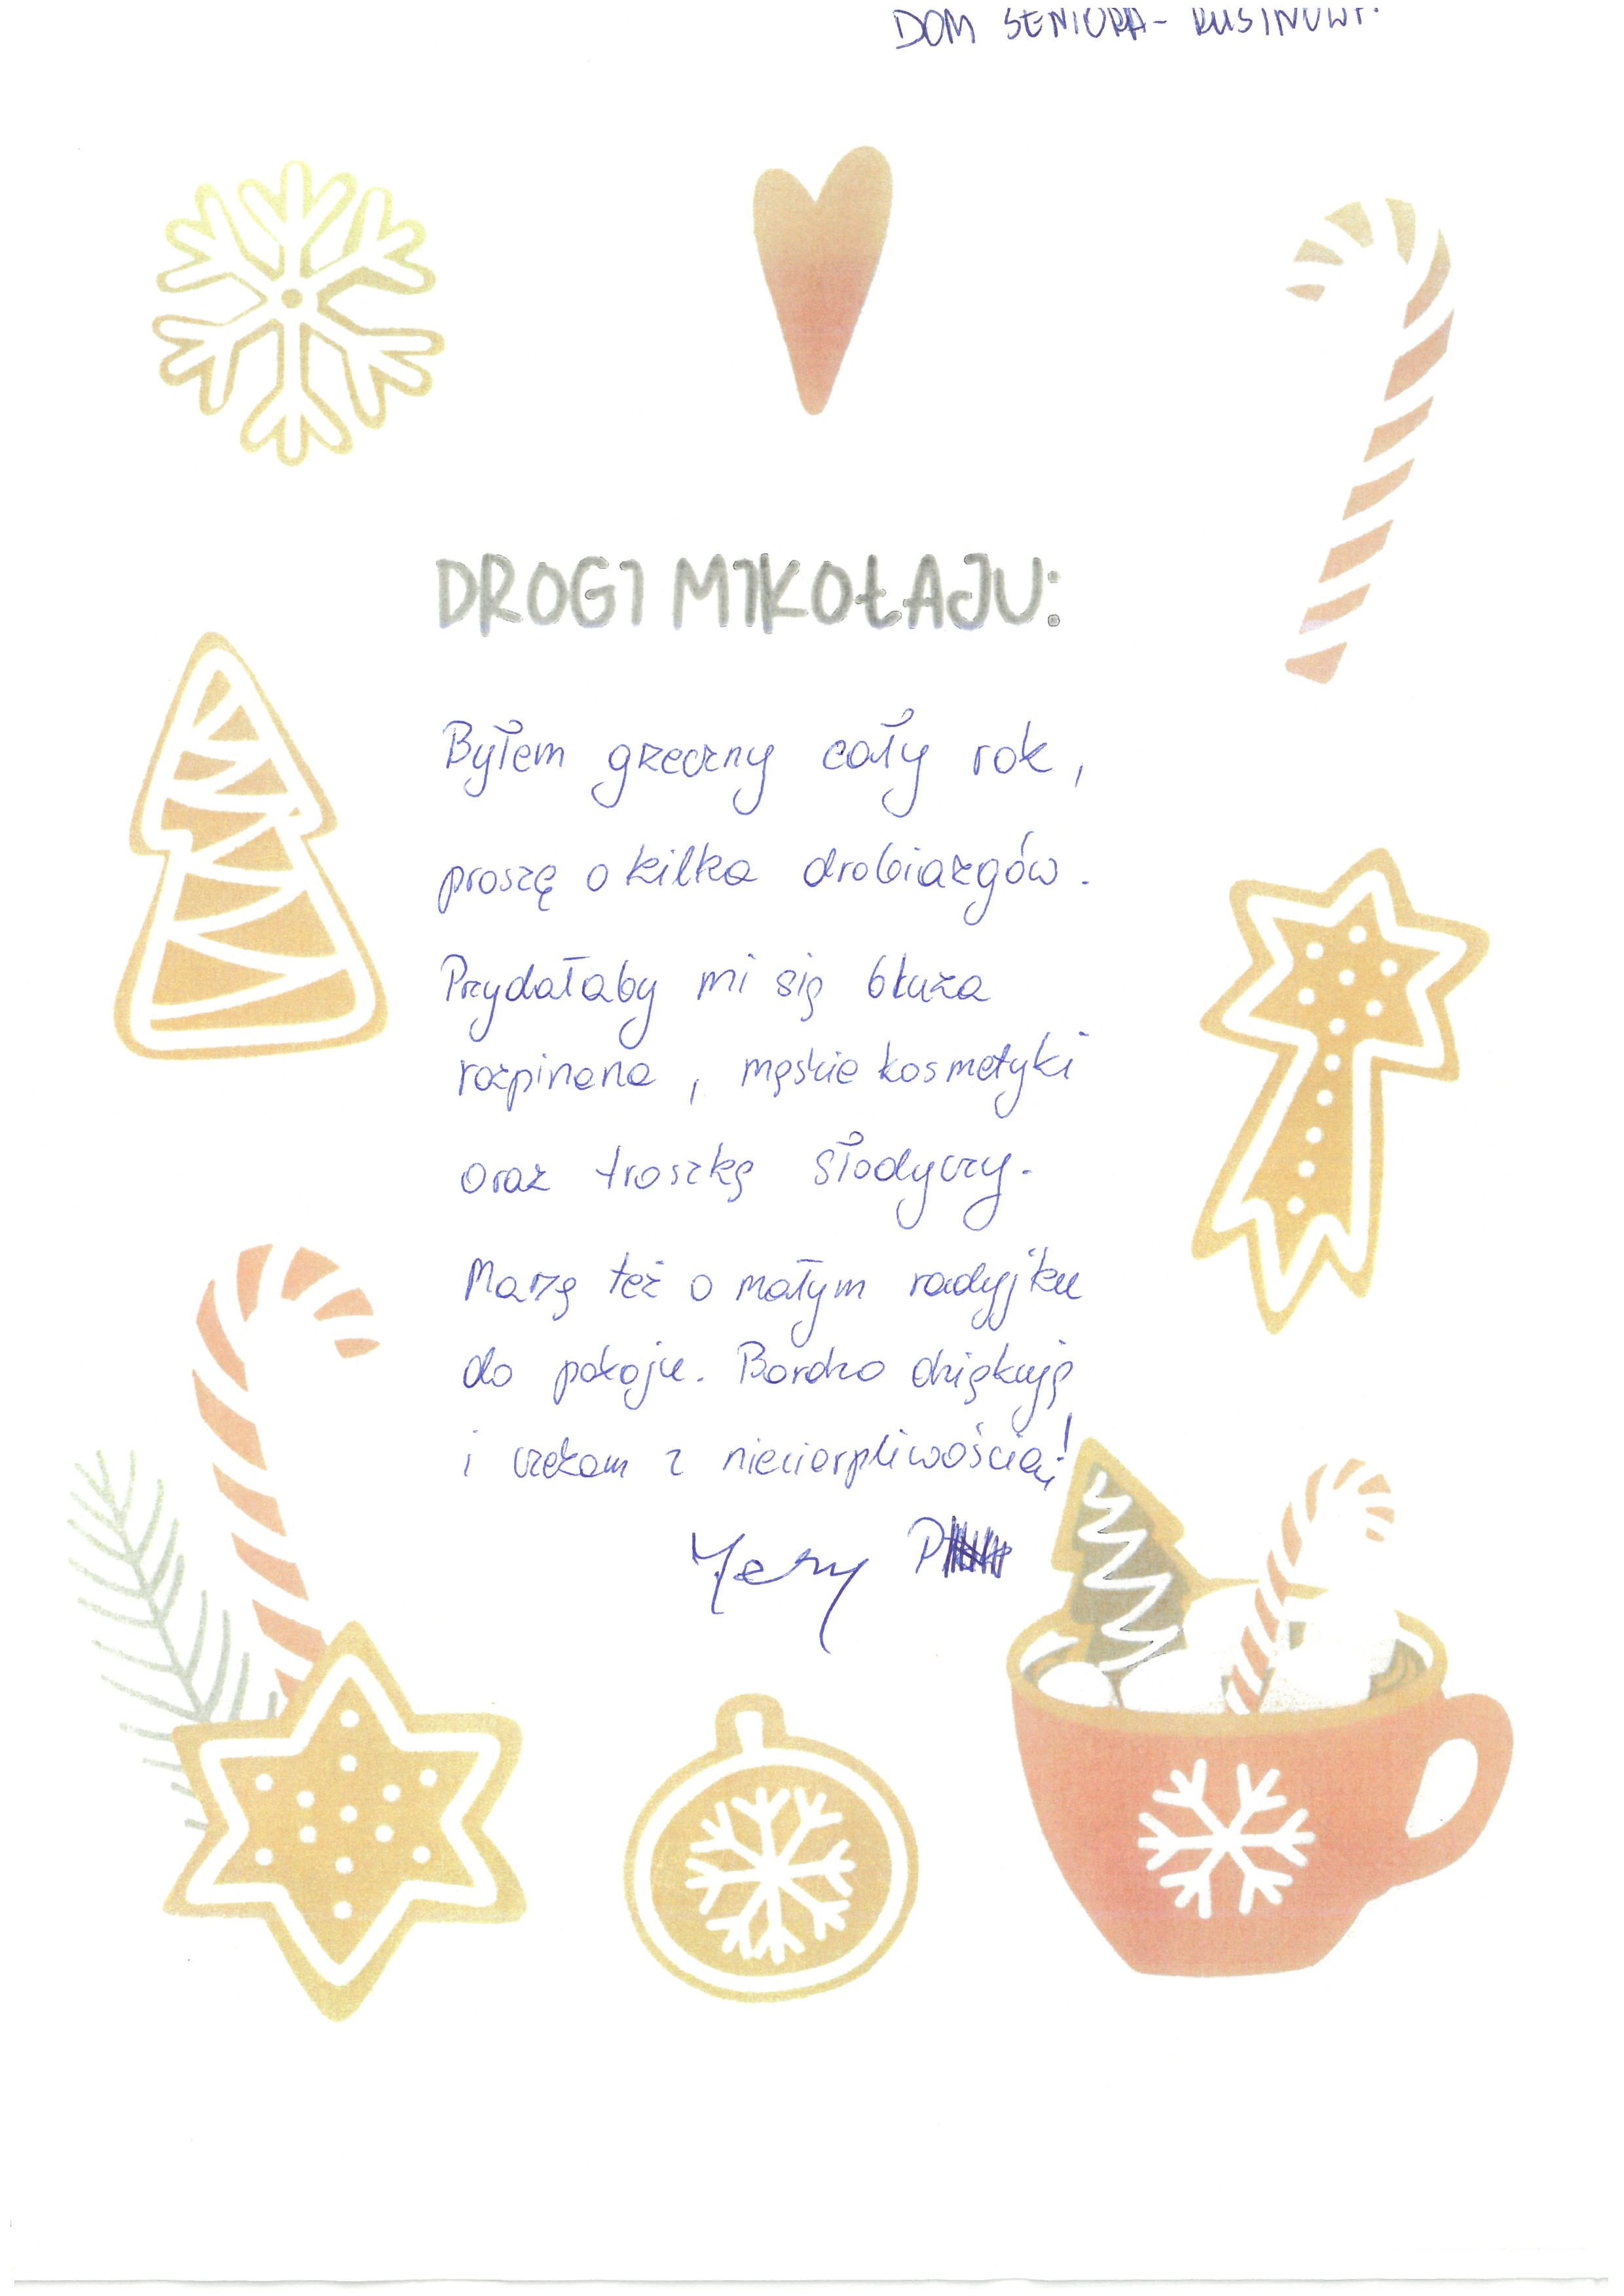 DOM SENIORA -
DROGI MIKOŁAJU:
Byłem grzeczny cały rok,
proszę o kilka drobiazgów.
Przydałaby mi się bluza
rozpinana, męskie kosmetyki
oraz troszkę słodyczy.
Marzę też o małym radyjku
do pokoju. Bardzo dziękuję
i czekam z niecierpliwością!
Jerzy P